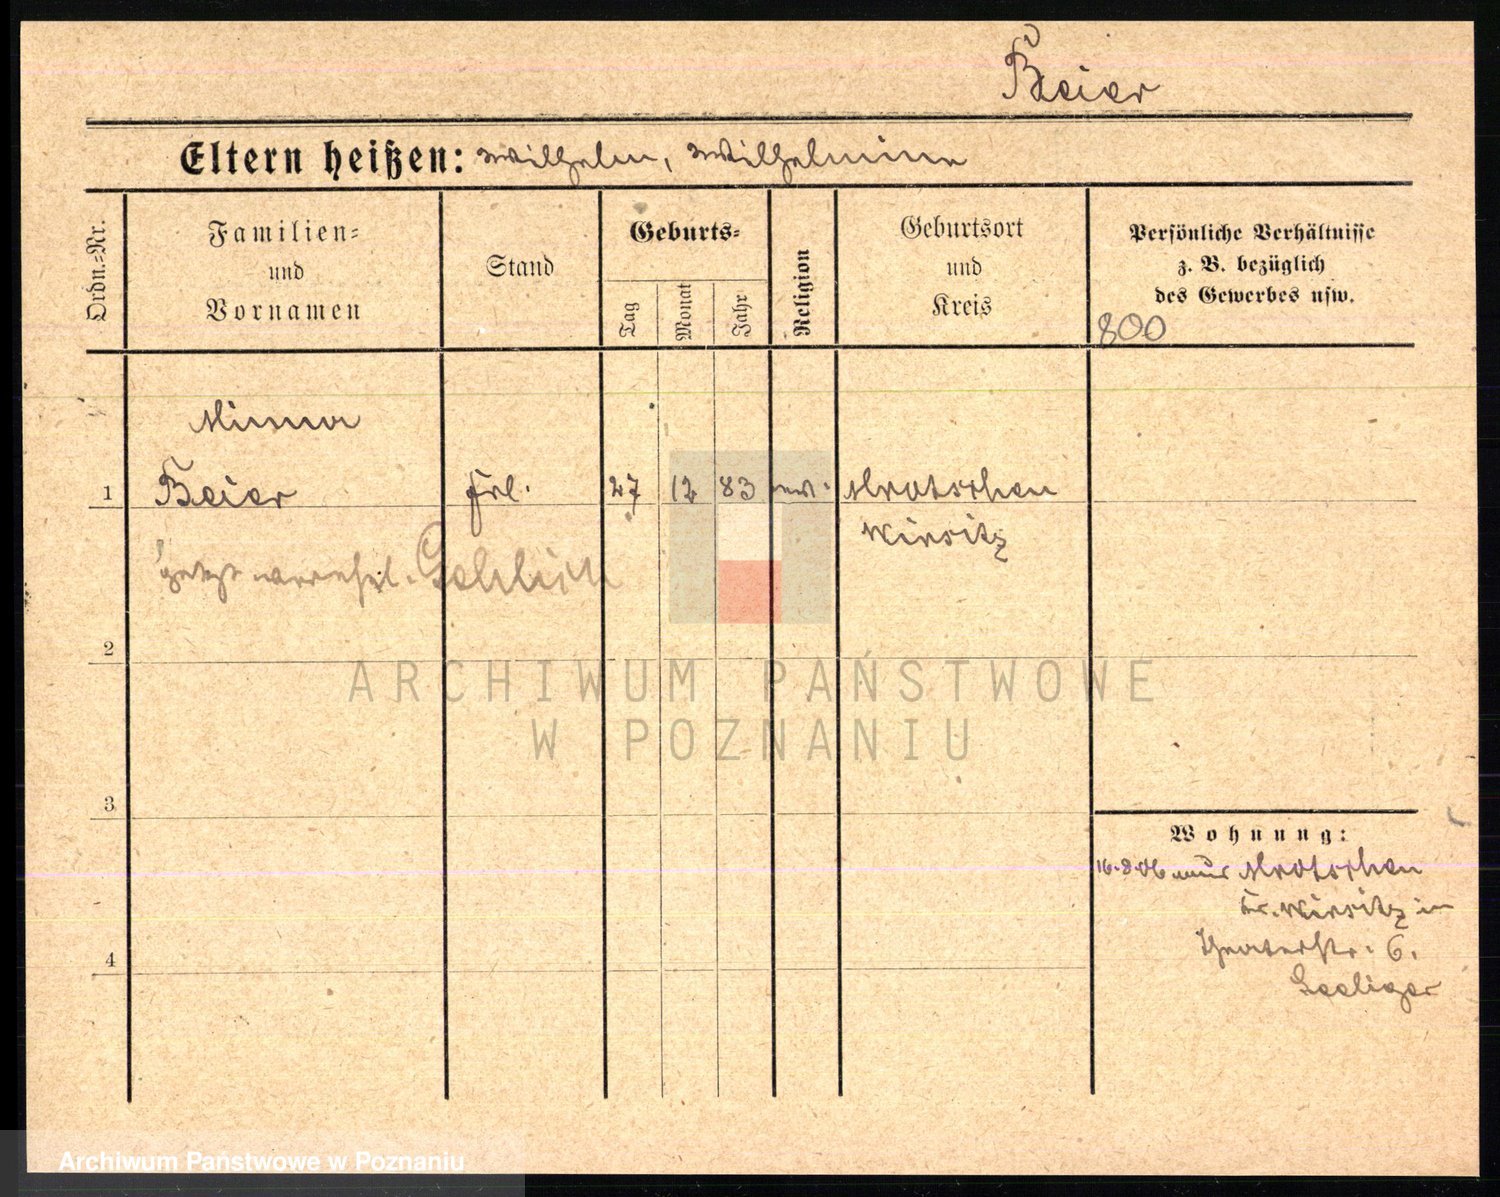 Beier
Eltern heißen: Wilhelm, Wilhelmine
Ordn.=Nr.
Familien=
und
Vornamen
Stand
Geburts=
Tag
Monat
Jahr
Religion
Geburtsort
und
Kreis
Persönliche Verhältnisse
z. B. bezüglich
des Gewerbes usw.
800
Minna
1 Beier Frl. 27 12 83 ev. Mrotschen
Wirsitz
jetzt verehel.
2
3
4
Wohnung:
16.8.06 aus Mrotschen
Kr. Wirsitz in
Theaterstr. 6.
Seeliger
ARCHIWUM PAŃSTWOWE
W POZNANIU
Archiwum Państwowe w Poznaniu